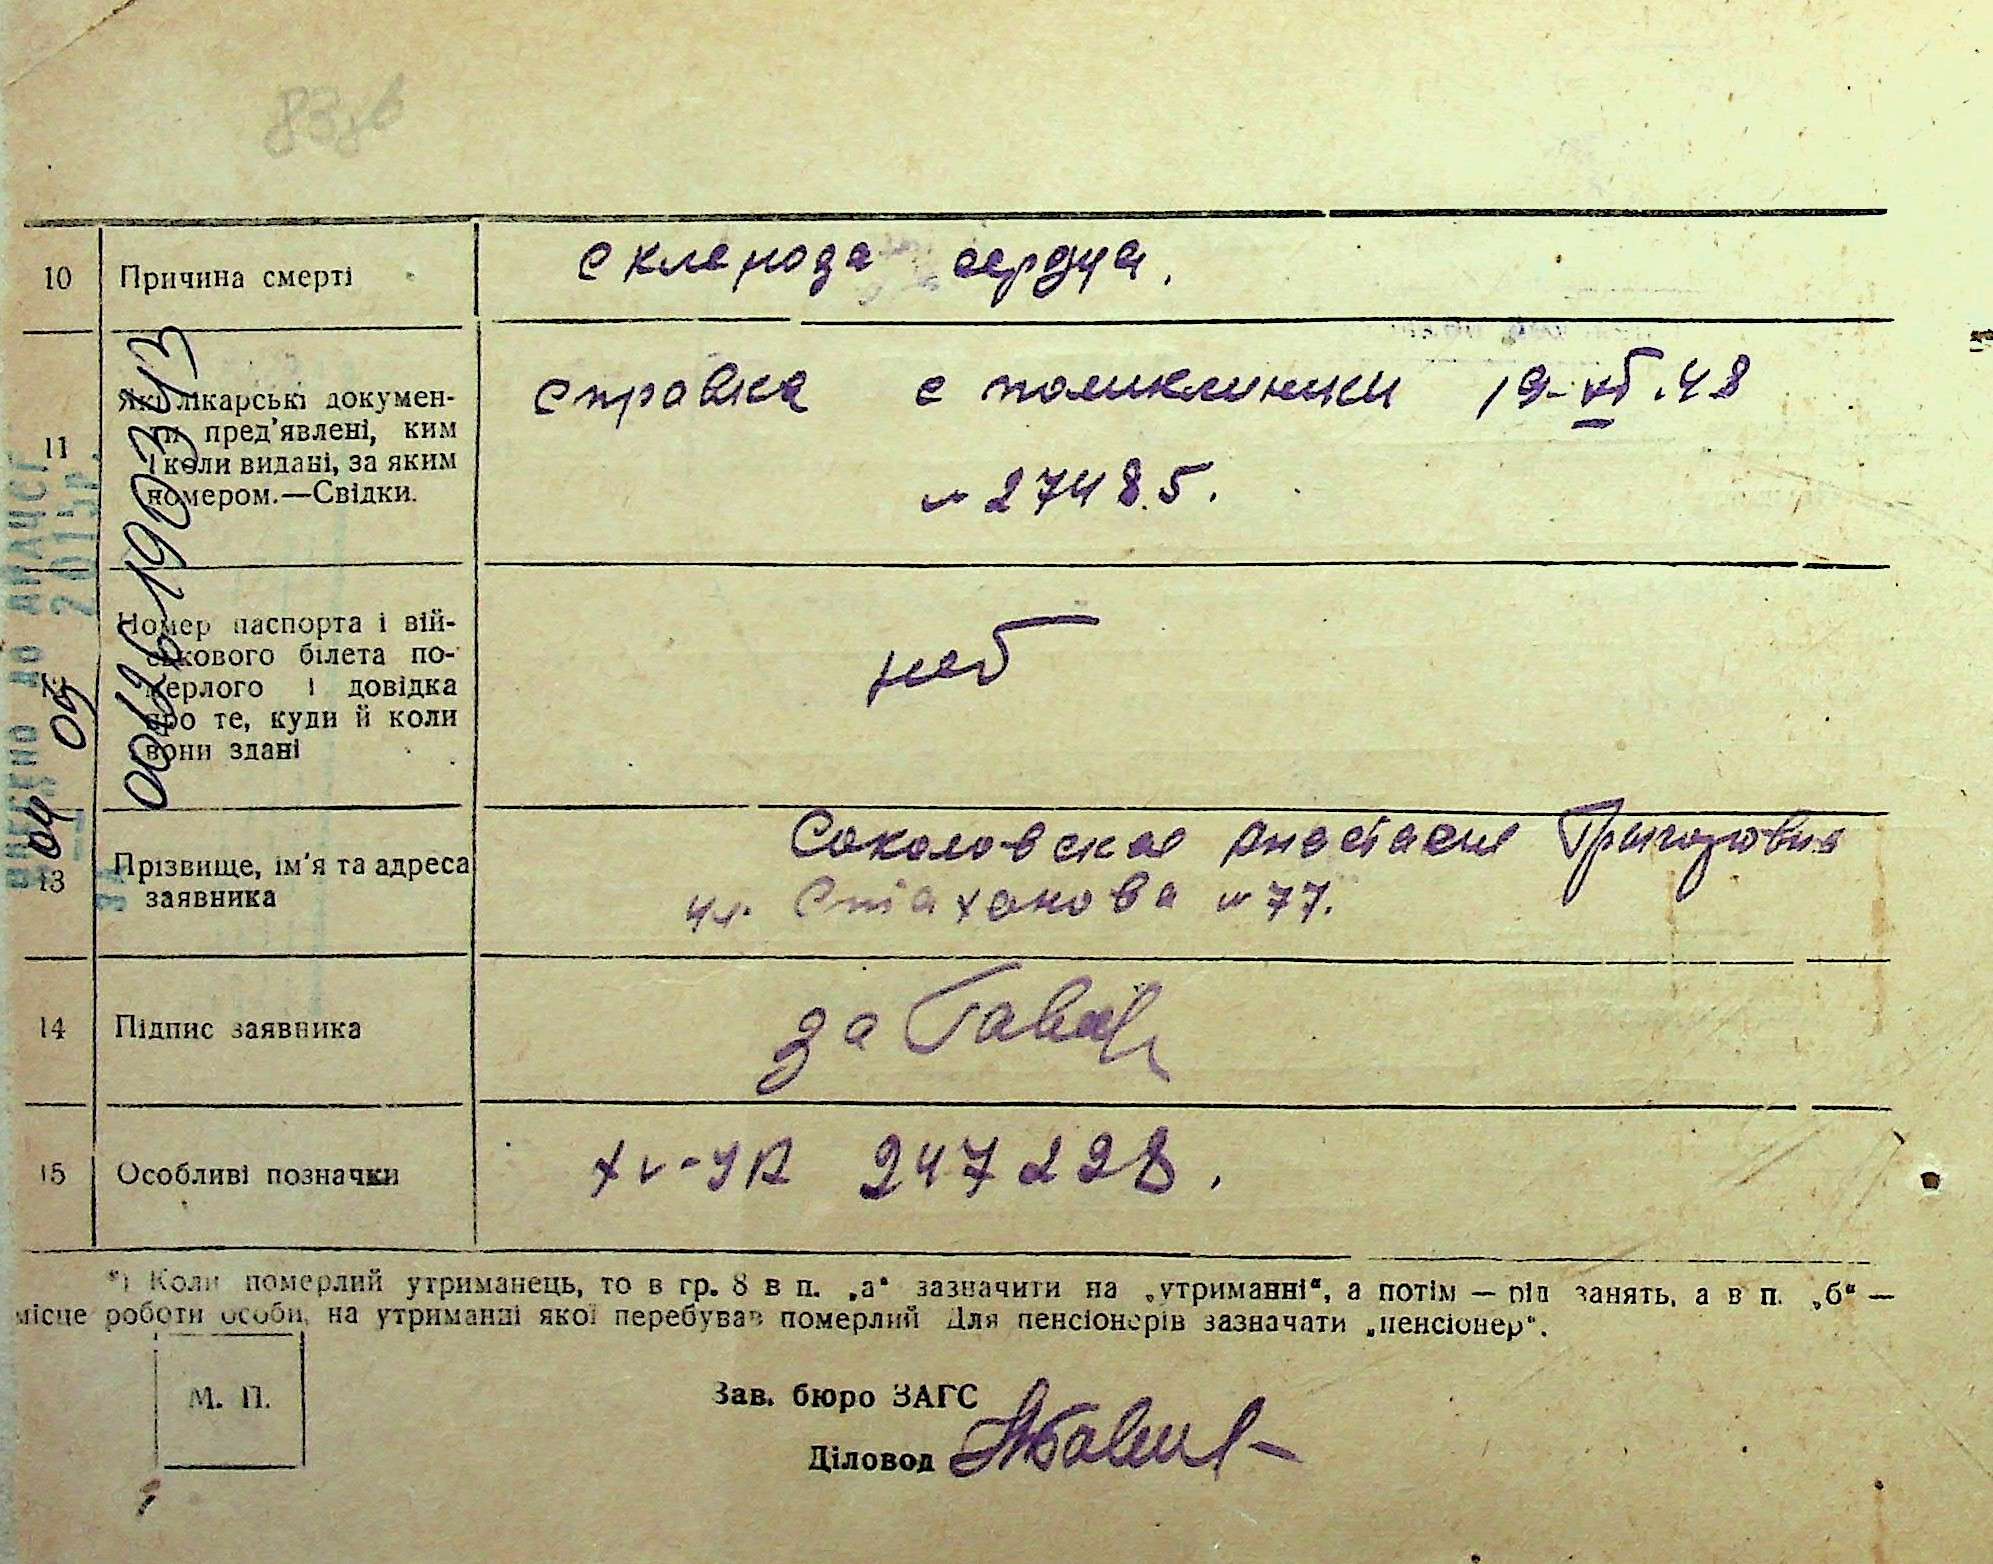 10 Причина смерті
склероза сердца.
11 Які лікарські докумен-
ти пред'явлені, ким
і коли видані, за яким
номером.—Свідки.
справка с поликлиники 19-XII.48
№ 27485.
Номер паспорта і вій-
ськового білета по-
мерлого і довідка
про те, куди й коли
вони здані
нет
13 Прізвище, ім'я та адреса
заявника
Соколовская Анастасия Григоровна
ул. Стаханова № 77.
14 Підпис заявника
за
15 Особливі позначки
247228.
*) Коли померлий утриманець, то в гр. 8 в п. „а“ зазначити на „утриманні“, а потім — рід занять, а в п. „б“ —
місце роботи особи, на утриманні якої перебував померлий Для пенсіонерів зазначати „пенсіонер“.
М. П.
Зав. бюро ЗАГС
Діловод
00126190343
04 05
ВНЕСЕНО ДО ДРАЦСГ
2015р.